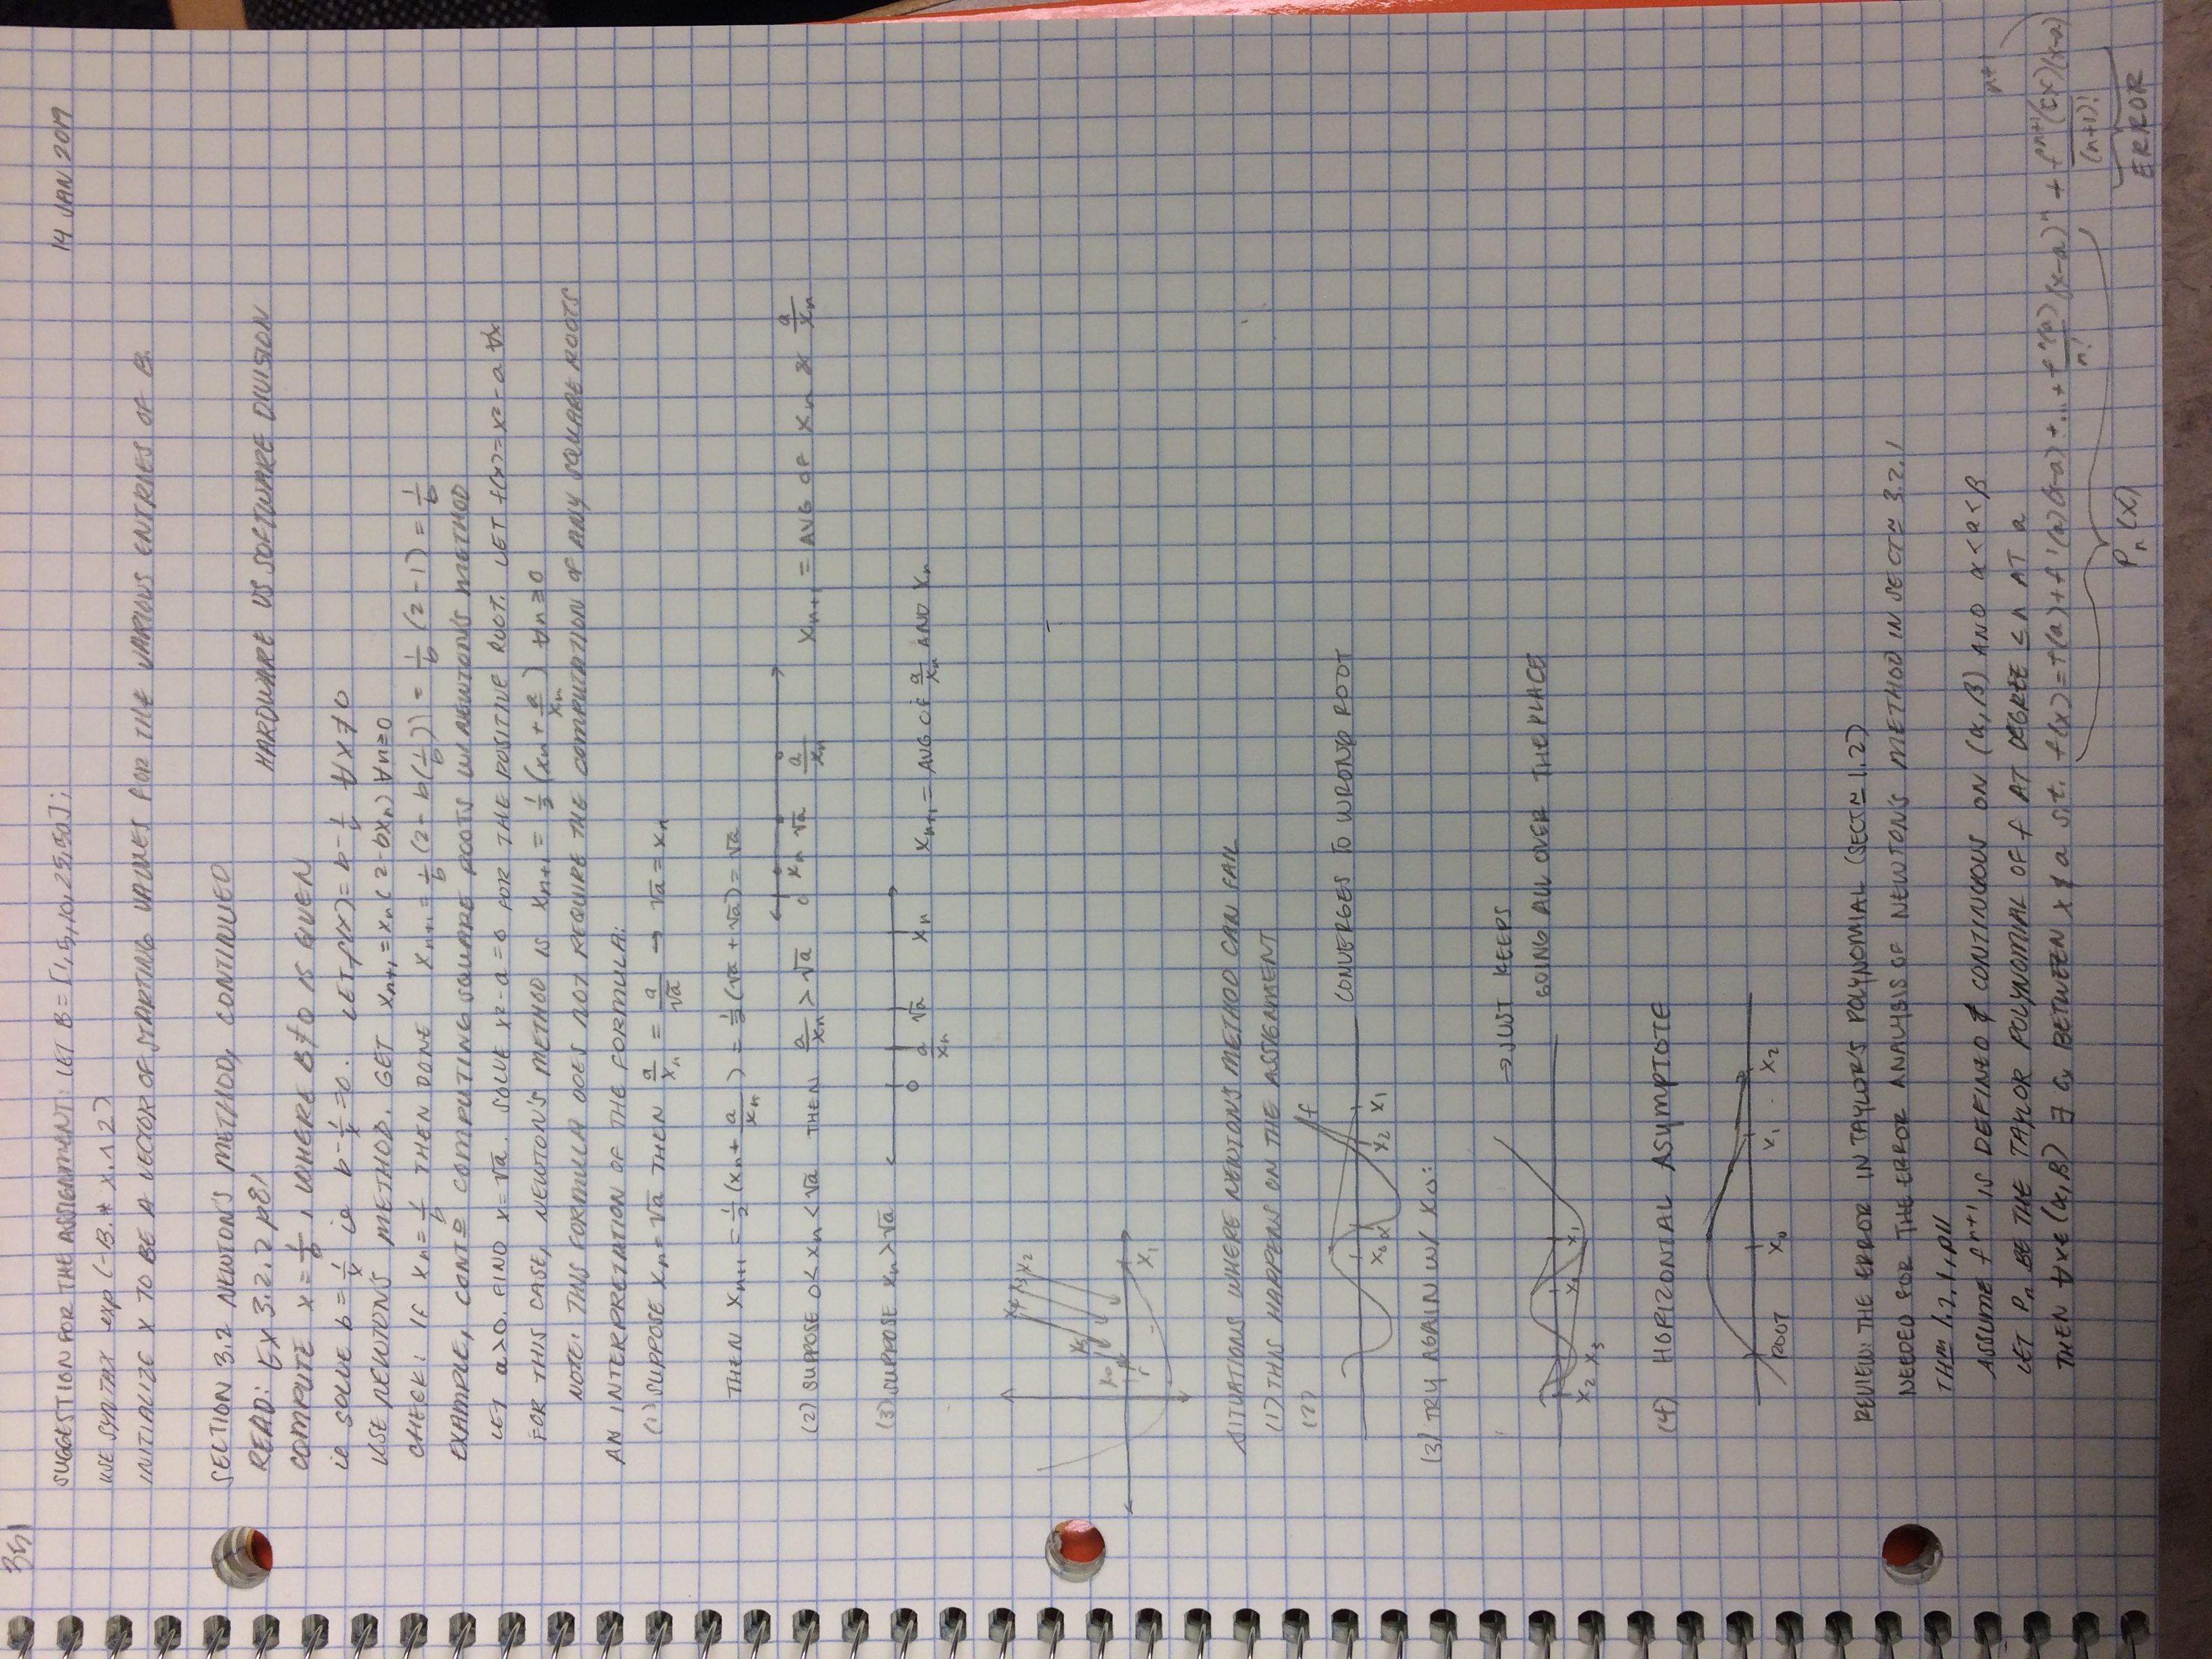 351
SUGGESTION FOR THE ASSIGNMENT: LET B = [1,5,10,25,50];
14 JAN 2019
USE SYNTAX exp(-B.* x.^2)
INITIALIZE X TO BE A VECTOR OF STARTING VALUES FOR THE VARIOUS ENTRIES OF B.
SECTION 3.2 NEWTON'S METHOD, CONTINUED
READ: EX 3.2.2 p81
HARDWARE VS SOFTWARE DIVISION
COMPUTE x = 1/b, WHERE B≠0 IS GIVEN
ie SOLVE b = 1/x ie b - 1/x = 0. LET f(x) = b - 1/x ∀x≠0
USE NEWTON'S METHOD. GET xₙ₊₁ = xₙ(2-bxₙ) ∀n≥0
CHECK: IF xₙ = 1/b THEN DONE xₙ₊₁ = 1/b (2 - b(1/b)) = 1/b (2-1) = 1/b
EXAMPLE, CONT'D COMPUTING SQUARE ROOTS W/ NEWTON'S METHOD
LET a>0. FIND x=√a. SOLVE x²-a=0 FOR THE POSITIVE ROOT. LET f(x)=x²-a ∀x
FOR THIS CASE, NEWTON'S METHOD IS xₙ₊₁ = 1/2 (xₙ + a/xₙ) ∀n≥0
NOTE: THIS FORMULA DOES NOT REQUIRE THE COMPUTATION OF ANY SQUARE ROOTS
AN INTERPRETATION OF THE FORMULA:
(1) SUPPOSE xₙ = √a THEN a/xₙ = a/√a → √a = xₙ
THEN xₙ₊₁ = 1/2 (xₙ + a/xₙ) = 1/2 (√a + √a) = √a
(2) SUPPOSE 0 < xₙ < √a THEN a/xₙ > √a
0 xₙ √a a/xₙ
xₙ₊₁ = AVG OF xₙ & a/xₙ
(3) SUPPOSE xₙ > √a
0 a/xₙ √a xₙ
xₙ₊₁ = AVG OF a/xₙ AND xₙ
x₄ x₃ x₂
x₅
x₀
r
x₁
SITUATIONS WHERE NEWTON'S METHOD CAN FAIL
(1) THIS HAPPENS ON THE ASSIGNMENT
(2)
f
CONVERGES TO WRONG ROOT
x₀ α x₂ x₁
(3) TRY AGAIN W/ X₀:
→ JUST KEEPS
GOING ALL OVER THE PLACE
x₂ x₃ x₀ x₁
(4) HORIZONTAL ASYMPTOTE
ROOT x₀ x₁ x₂
REVIEW: THE ERROR IN TAYLOR'S POLYNOMIAL (SECTN 1.2)
NEEDED FOR THE ERROR ANALYSIS OF NEWTON'S METHOD IN SECTN 3.2.1
THM 1.2.1, p11
ASSUME fⁿ⁺¹ IS DEFINED & CONTINUOUS ON (α,β) AND α<a<β
LET Pₙ BE THE TAYLOR POLYNOMIAL OF f AT DEGREE ≤ n AT a
THEN ∀x∈(α,β) ∃ cₓ BETWEEN x & a s.t. f(x) = f(a)+f'(a)(x-a)+...+ fⁿ(a)/n! (x-a)ⁿ + fⁿ⁺¹(cx)(x-a)ⁿ⁺¹/(n+1)!
Pₙ(x)
ERROR